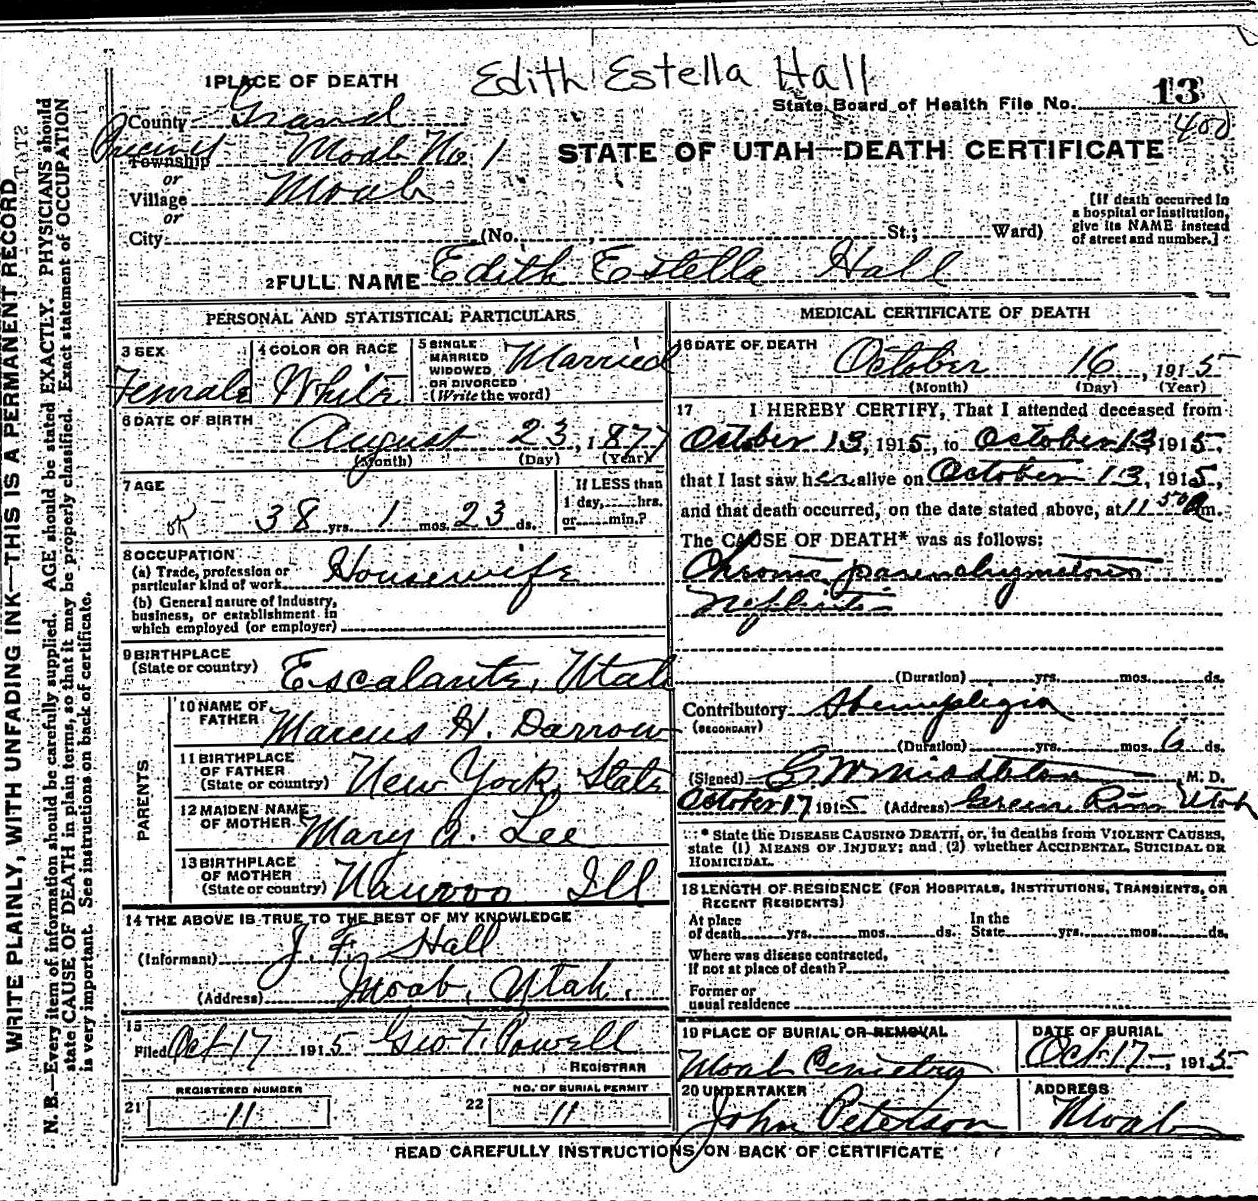 Edith Estella Hall
1 PLACE OF DEATH
State Board of Health File No. 13
400
County Grand
Precinct
Township Moab No 1
or
Village Moab
or
City (No. , St.; Ward)
STATE OF UTAH—DEATH CERTIFICATE
[If death occurred in
a hospital or institution,
give its NAME instead
of street and number.]
2 FULL NAME Edith Estella Hall
PERSONAL AND STATISTICAL PARTICULARS
3 SEX
Female
4 COLOR OR RACE
White
5 SINGLE
MARRIED
WIDOWED
OR DIVORCED
(Write the word)
Married
6 DATE OF BIRTH
August 23, 1877
(Month) (Day) (Year)
7 AGE
ok 38 yrs. 1 mos. 23 ds.
If LESS than
1 day, hrs.
or min.?
8 OCCUPATION
(a) Trade, profession or
particular kind of work Housewife
(b) General nature of Industry,
business, or establishment in
which employed (or employer)
9 BIRTHPLACE
(State or country) Escalante, Utah
PARENTS
10 NAME OF
FATHER Marcus H. Darrow
11 BIRTHPLACE
OF FATHER
(State or country) New York State
12 MAIDEN NAME
OF MOTHER Mary A. Lee
13 BIRTHPLACE
OF MOTHER
(State or country) Nauvoo Ill
14 THE ABOVE IS TRUE TO THE BEST OF MY KNOWLEDGE
(Informant) J. F. Hall
(Address) Moab, Utah.
15
Filed Oct 17 1915 Geo F. Powell
REGISTRAR
REGISTERED NUMBER
21 11
NO. OF BURIAL PERMIT
22 11
MEDICAL CERTIFICATE OF DEATH
16 DATE OF DEATH
October 16, 1915
(Month) (Day) (Year)
17 I HEREBY CERTIFY, That I attended deceased from
October 13, 1915, to October 13 1915,
that I last saw her alive on October 13, 1915,
and that death occurred, on the date stated above, at 11 50 A m.
The CAUSE OF DEATH* was as follows:
Chronic parenchymetous
Neflritis
(Duration) yrs. mos. ds.
Contributory Hemyplegia
(SECONDARY)
(Duration) yrs. mos. 6 ds.
(Signed) G W Middleton, M. D.
October 17 1915 (Address) Green River Utah
* State the DISEASE CAUSING DEATH, or, in deaths from VIOLENT CAUSES,
state (1) MEANS OF INJURY; and (2) whether ACCIDENTAL, SUICIDAL OR
HOMICIDAL.
18 LENGTH OF RESIDENCE (FOR HOSPITALS, INSTITUTIONS, TRANSIENTS, OR
RECENT RESIDENTS)
At place
of death yrs. mos. ds.
In the
State yrs. mos. ds.
Where was disease contracted,
if not at place of death?
Former or
usual residence
19 PLACE OF BURIAL OR REMOVAL
Moab Cemetery
DATE OF BURIAL
Oct 17, 1915
20 UNDERTAKER
John Peterson
ADDRESS
Moab
READ CAREFULLY INSTRUCTIONS ON BACK OF CERTIFICATE
WRITE PLAINLY, WITH UNFADING INK—THIS IS A PERMANENT RECORD
N. B.—Every item of information should be carefully supplied. AGE should be stated EXACTLY. PHYSICIANS should
state CAUSE OF DEATH in plain terms, so that it may be properly classified. Exact statement of OCCUPATION
is very important. See instructions on back of certificate.